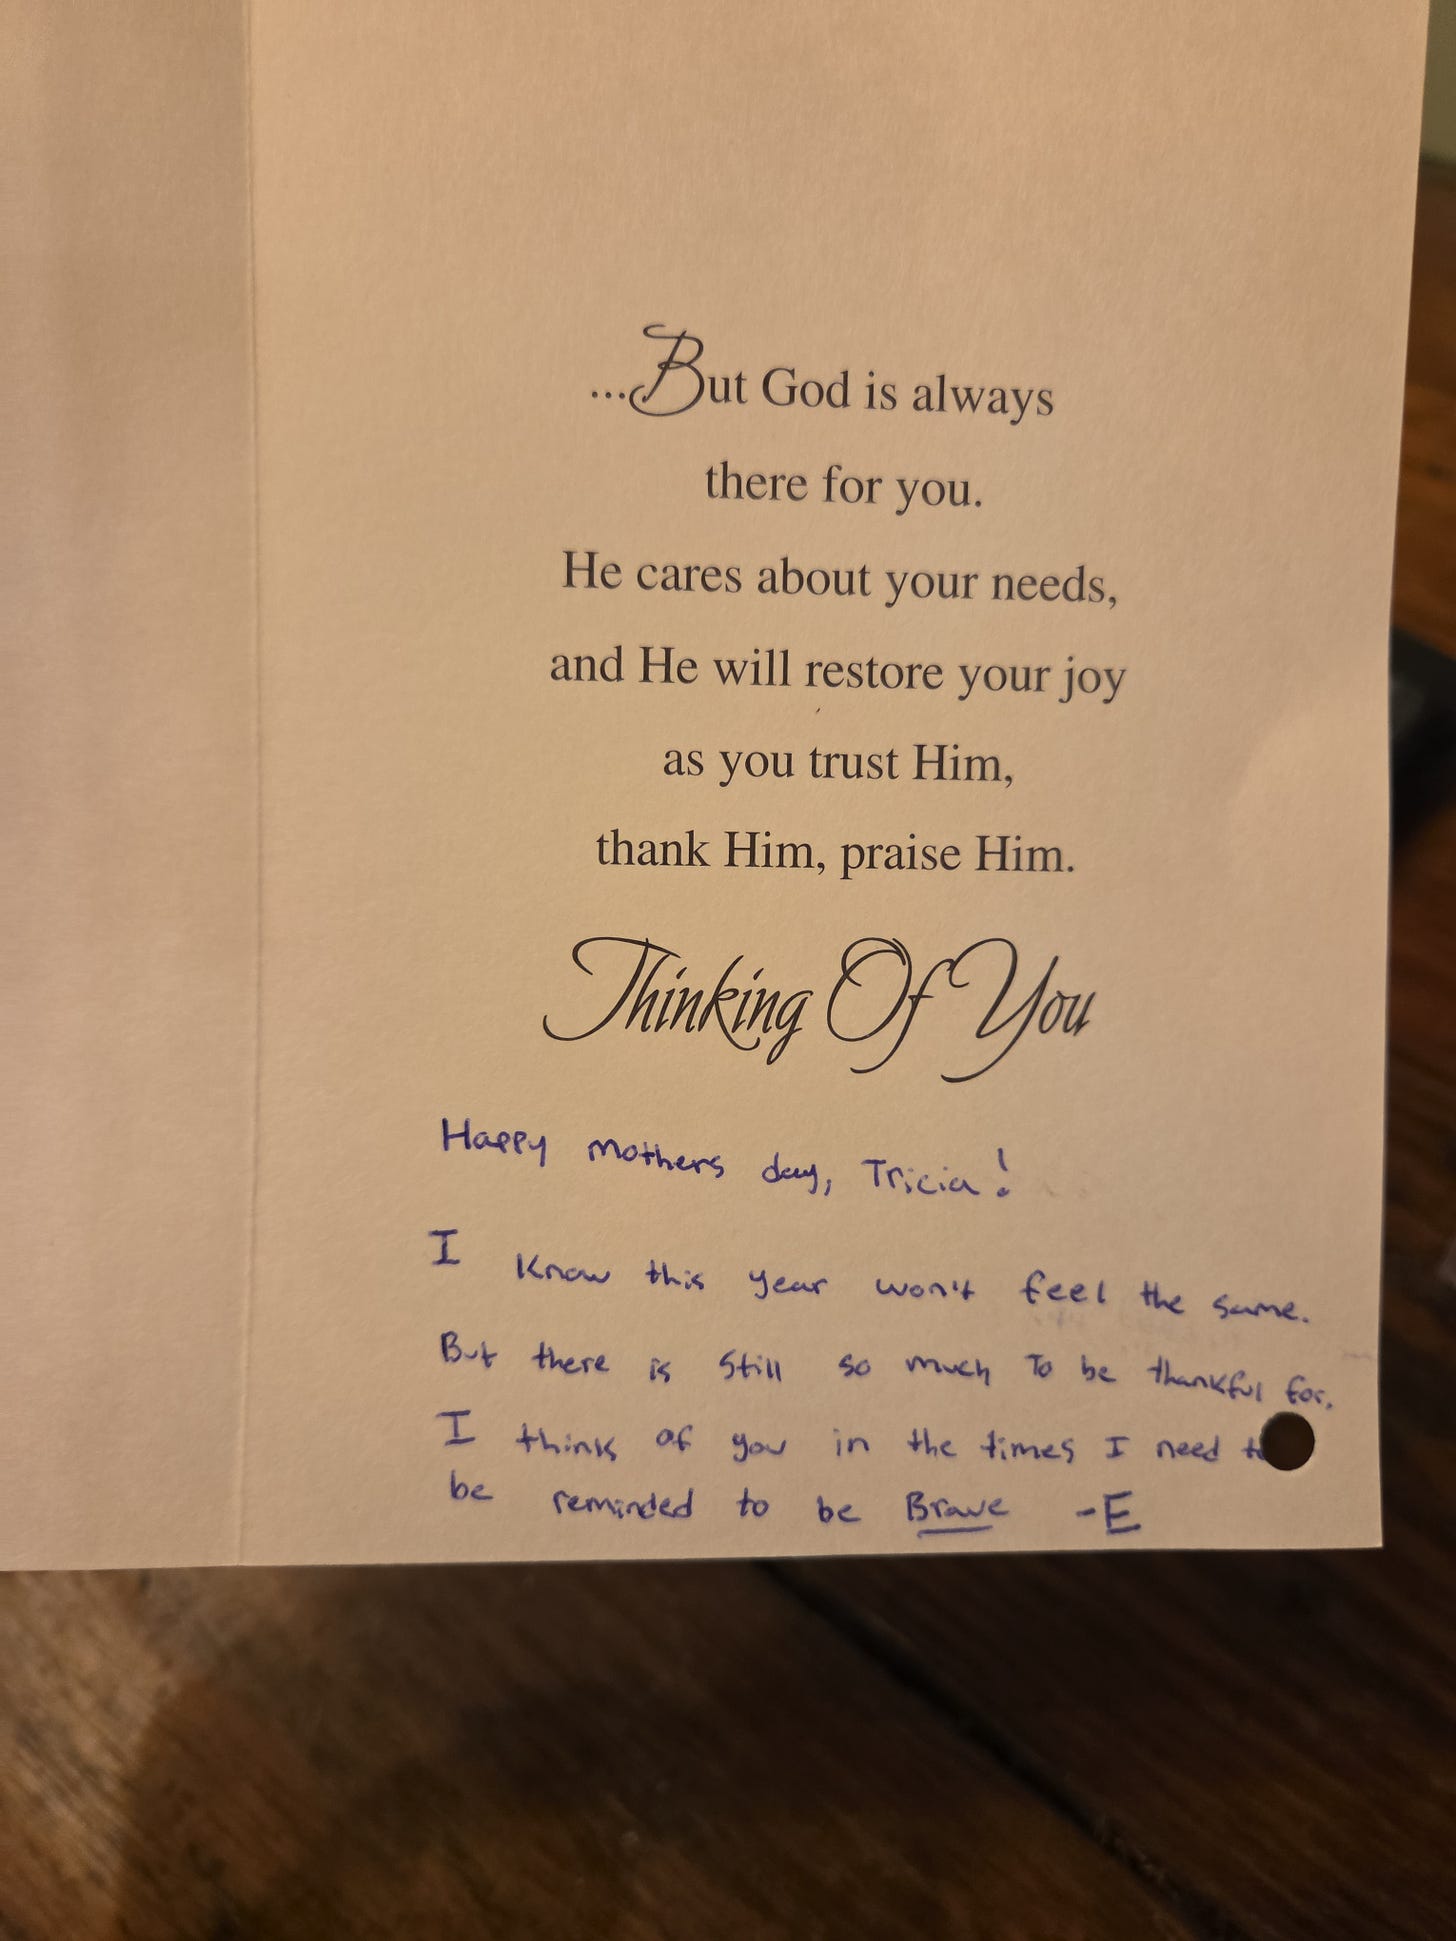 ...But God is always
there for you.
He cares about your needs,
and He will restore your joy
as you trust Him,
thank Him, praise Him.
Thinking Of You
Happy mothers day, Tricia!
I know this year won't feel the same.
But there is still so much To be thankful for.
I think of you in the times I need to
be reminded to be Brave -E